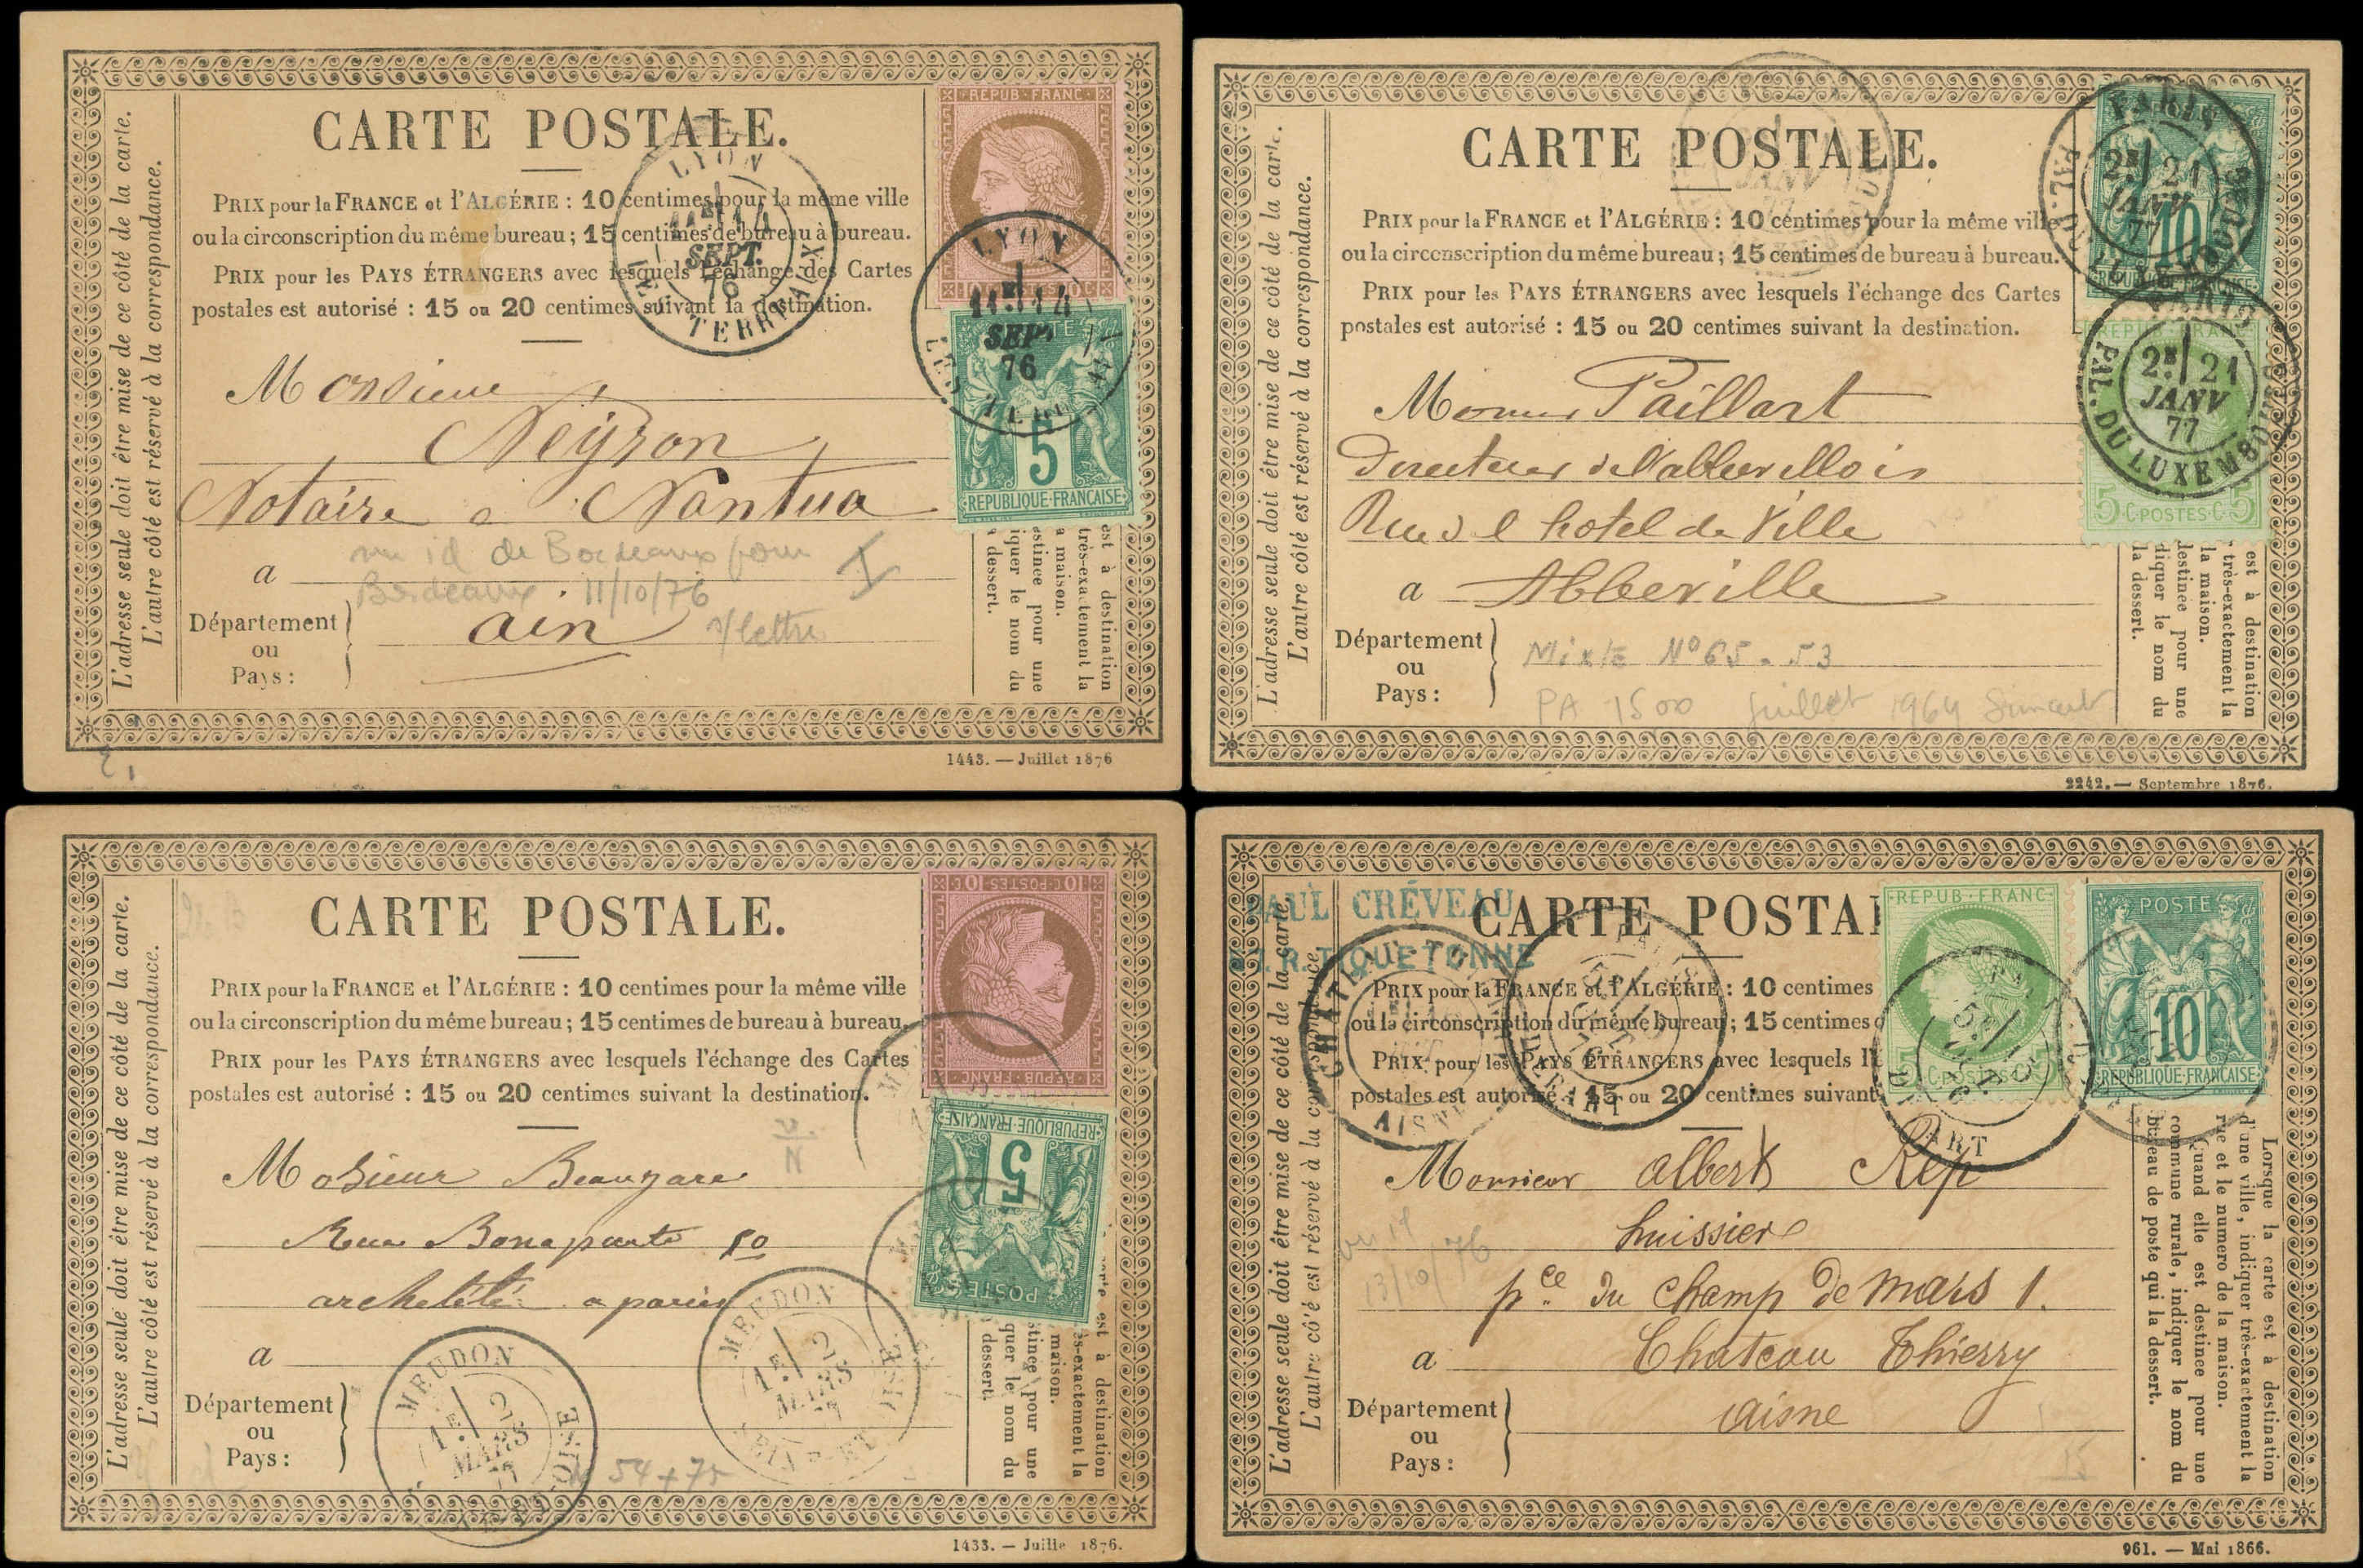 CARTE POSTALE.
PRIX pour la FRANCE et l'ALGÉRIE : 10 centimes pour la même ville
ou la circonscription du même bureau ; 15 centimes de bureau à bureau.
PRIX pour les PAYS ÉTRANGERS avec lesquels l'échange des Cartes
postales est autorisé : 15 ou 20 centimes suivant la destination.
L'adresse seule doit être mise de ce côté de la carte.
L'autre côté est réservé à la correspondance.
REPUB · FRANC ·
LYON
SEPT.
76
LES TERREAUX
LYON
11E 14
SEPT
76
5
REPUBLIQUE FRANÇAISE
Monsieur
Neyron
Notaire a Nantua
de Bordeaux pour
a
Bordeaux 11/10/76
Département
ou
Pays :
ain
s/lettre
est à destination
très-exactement la
a maison.
stinée pour une
iquer le nom du
a dessert.
1443. — Juillet 1876
CARTE POSTALE.
PRIX pour la FRANCE et l'ALGÉRIE : 10 centimes pour la même ville
ou la circonscription du même bureau ; 15 centimes de bureau à bureau.
PRIX pour les PAYS ÉTRANGERS avec lesquels l'échange des Cartes
postales est autorisé : 15 ou 20 centimes suivant la destination.
L'adresse seule doit être mise de ce côté de la carte.
L'autre côté est réservé à la correspondance.
JANV
77
PARIS
2E 21
JANV
77
PAL. DU LUXEMBOURG
10
REPUBLIQUE FRANÇAISE
REPUB · FRANC
PARIS
2E 21
JANV
77
PAL. DU LUXEMBOURG
5 C · POSTES · C 5
Paillart
Directeur de l'abbevillois
Rue de l hotel de Ville
a Abbeville
Département
ou
Pays :
Mixte N° 65 - 53
PA 1500 Juillet 1964
est à destination
très-exactement la
la maison.
destinée pour une
diquer le nom du
la dessert.
2242. — Septembre 1876.
CARTE POSTALE.
PRIX pour la FRANCE et l'ALGÉRIE : 10 centimes pour la même ville
ou la circonscription du même bureau ; 15 centimes de bureau à bureau.
PRIX pour les PAYS ÉTRANGERS avec lesquels l'échange des Cartes
postales est autorisé : 15 ou 20 centimes suivant la destination.
L'adresse seule doit être mise de ce côté de la carte.
L'autre côté est réservé à la correspondance.
10 C · POSTES · 10 C
REPUB · FRANC
REPUBLIQUE FRANÇAISE
5
POSTES
Mosieur
Rue Bonaparte
a paris
a
MEUDON
1E 2
MARS
SEINE-ET-OISE
MEUDON
1E 2
MARS
SEINE-ET-OISE
Département
ou
Pays :
54 + 75
est à destination
ès-exactement la
maison.
stinée pour une
quer le nom du
dessert.
1433. — Juille 1876.
PAUL CRÉVEAU
R. TIQUETONNE
CARTE POSTA
PRIX pour la FRANCE et l'ALGÉRIE : 10 centimes
ou la circonscription du même bureau ; 15 centimes
PRIX pour les PAYS ÉTRANGERS avec lesquels l'
postales est autorisé : 15 ou 20 centimes suivant
L'adresse seule doit être mise de ce côté de la carte.
L'autre côté est réservé à la correspondance.
AISNE
DÉPART
REPUB · FRANC
5 C · POSTES
DÉPART
POSTES
10
REPUBLIQUE FRANÇAISE
Monsieur Albert Rep
huissier
13/10/76
pce du Champ de Mars 1.
a Chateau Thierry
Département
ou
Pays :
aisne
Lorsque la carte est à destination
d'une ville, indiquer très-exactement la
rue et le numéro de la maison.
Quand elle est destinée pour une
commune rurale, indiquer le nom du
bureau de poste qui la dessert.
961. — Mai 1866.